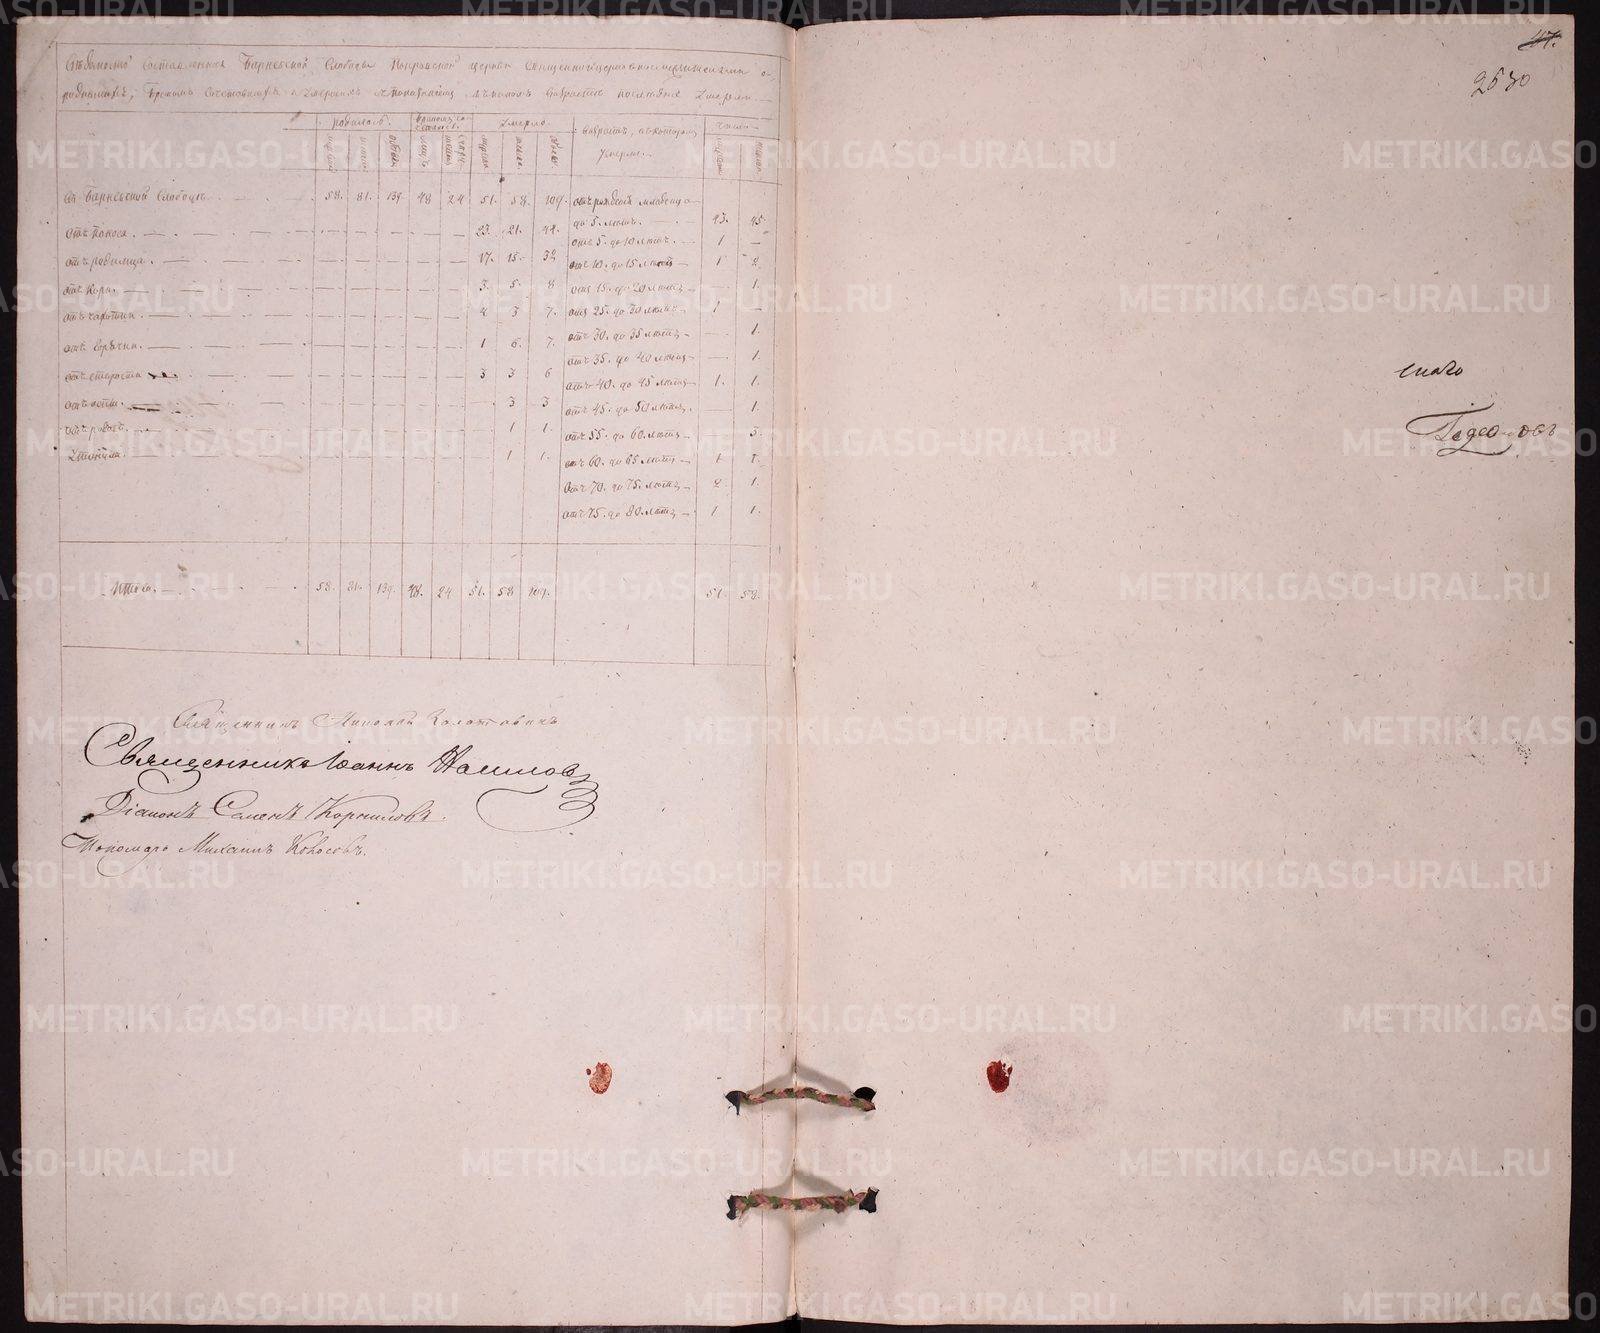 47.
2530
Вѣдомость составленная Барневской Слободы Покровской церкви
родившихся, бракомъ сочетавшихся и умершихъ
родилось. умерло. возрастъ, въ которомъ умерли. число
въ Барневской Слободѣ 58. 81. 139. 48 24 51. 58. 109. отъ рожденія младенца
до 5. лѣтъ. 43. 45.
отъ поноса. 23. 21. 44. отъ 5. до 10 лѣтъ. 1 —
отъ родимца. 17. 15. 32 отъ 10. до 15 лѣтъ 1 2.
отъ кори. 3. 5. 8 отъ 15. до 20 лѣтъ — 1.
отъ чахотки. 4 3 7. отъ 25. до 30 лѣтъ 1 —
отъ горячки. 1 6. 7. отъ 30. до 35 лѣтъ — 1.
отъ 35. до 40 лѣтъ — 1.
отъ старости 3 3 6 отъ 40. до 45 лѣтъ 1. 1.
отъ оспы. 3 3 отъ 45. до 50 лѣтъ — 1.
отъ родовъ. 1 1. отъ 55. до 60 лѣтъ — 3.
утонула. 1 1. отъ 60. до 65 лѣтъ 1 1.
отъ 70. до 75. лѣтъ 2 1.
отъ 75. до 80. лѣтъ 1 1.
Итого. 58. 81. 139. 48. 24 51. 58 109. 51. 58.
Священникъ Николай Золотавинъ
Священникъ Іоаннъ Насилов
Діаконъ Семенъ Корниловъ.
Пономарь Михаилъ Кокосовъ.
сного
Гедеоновъ
METRIKI.GASO-URAL.RU